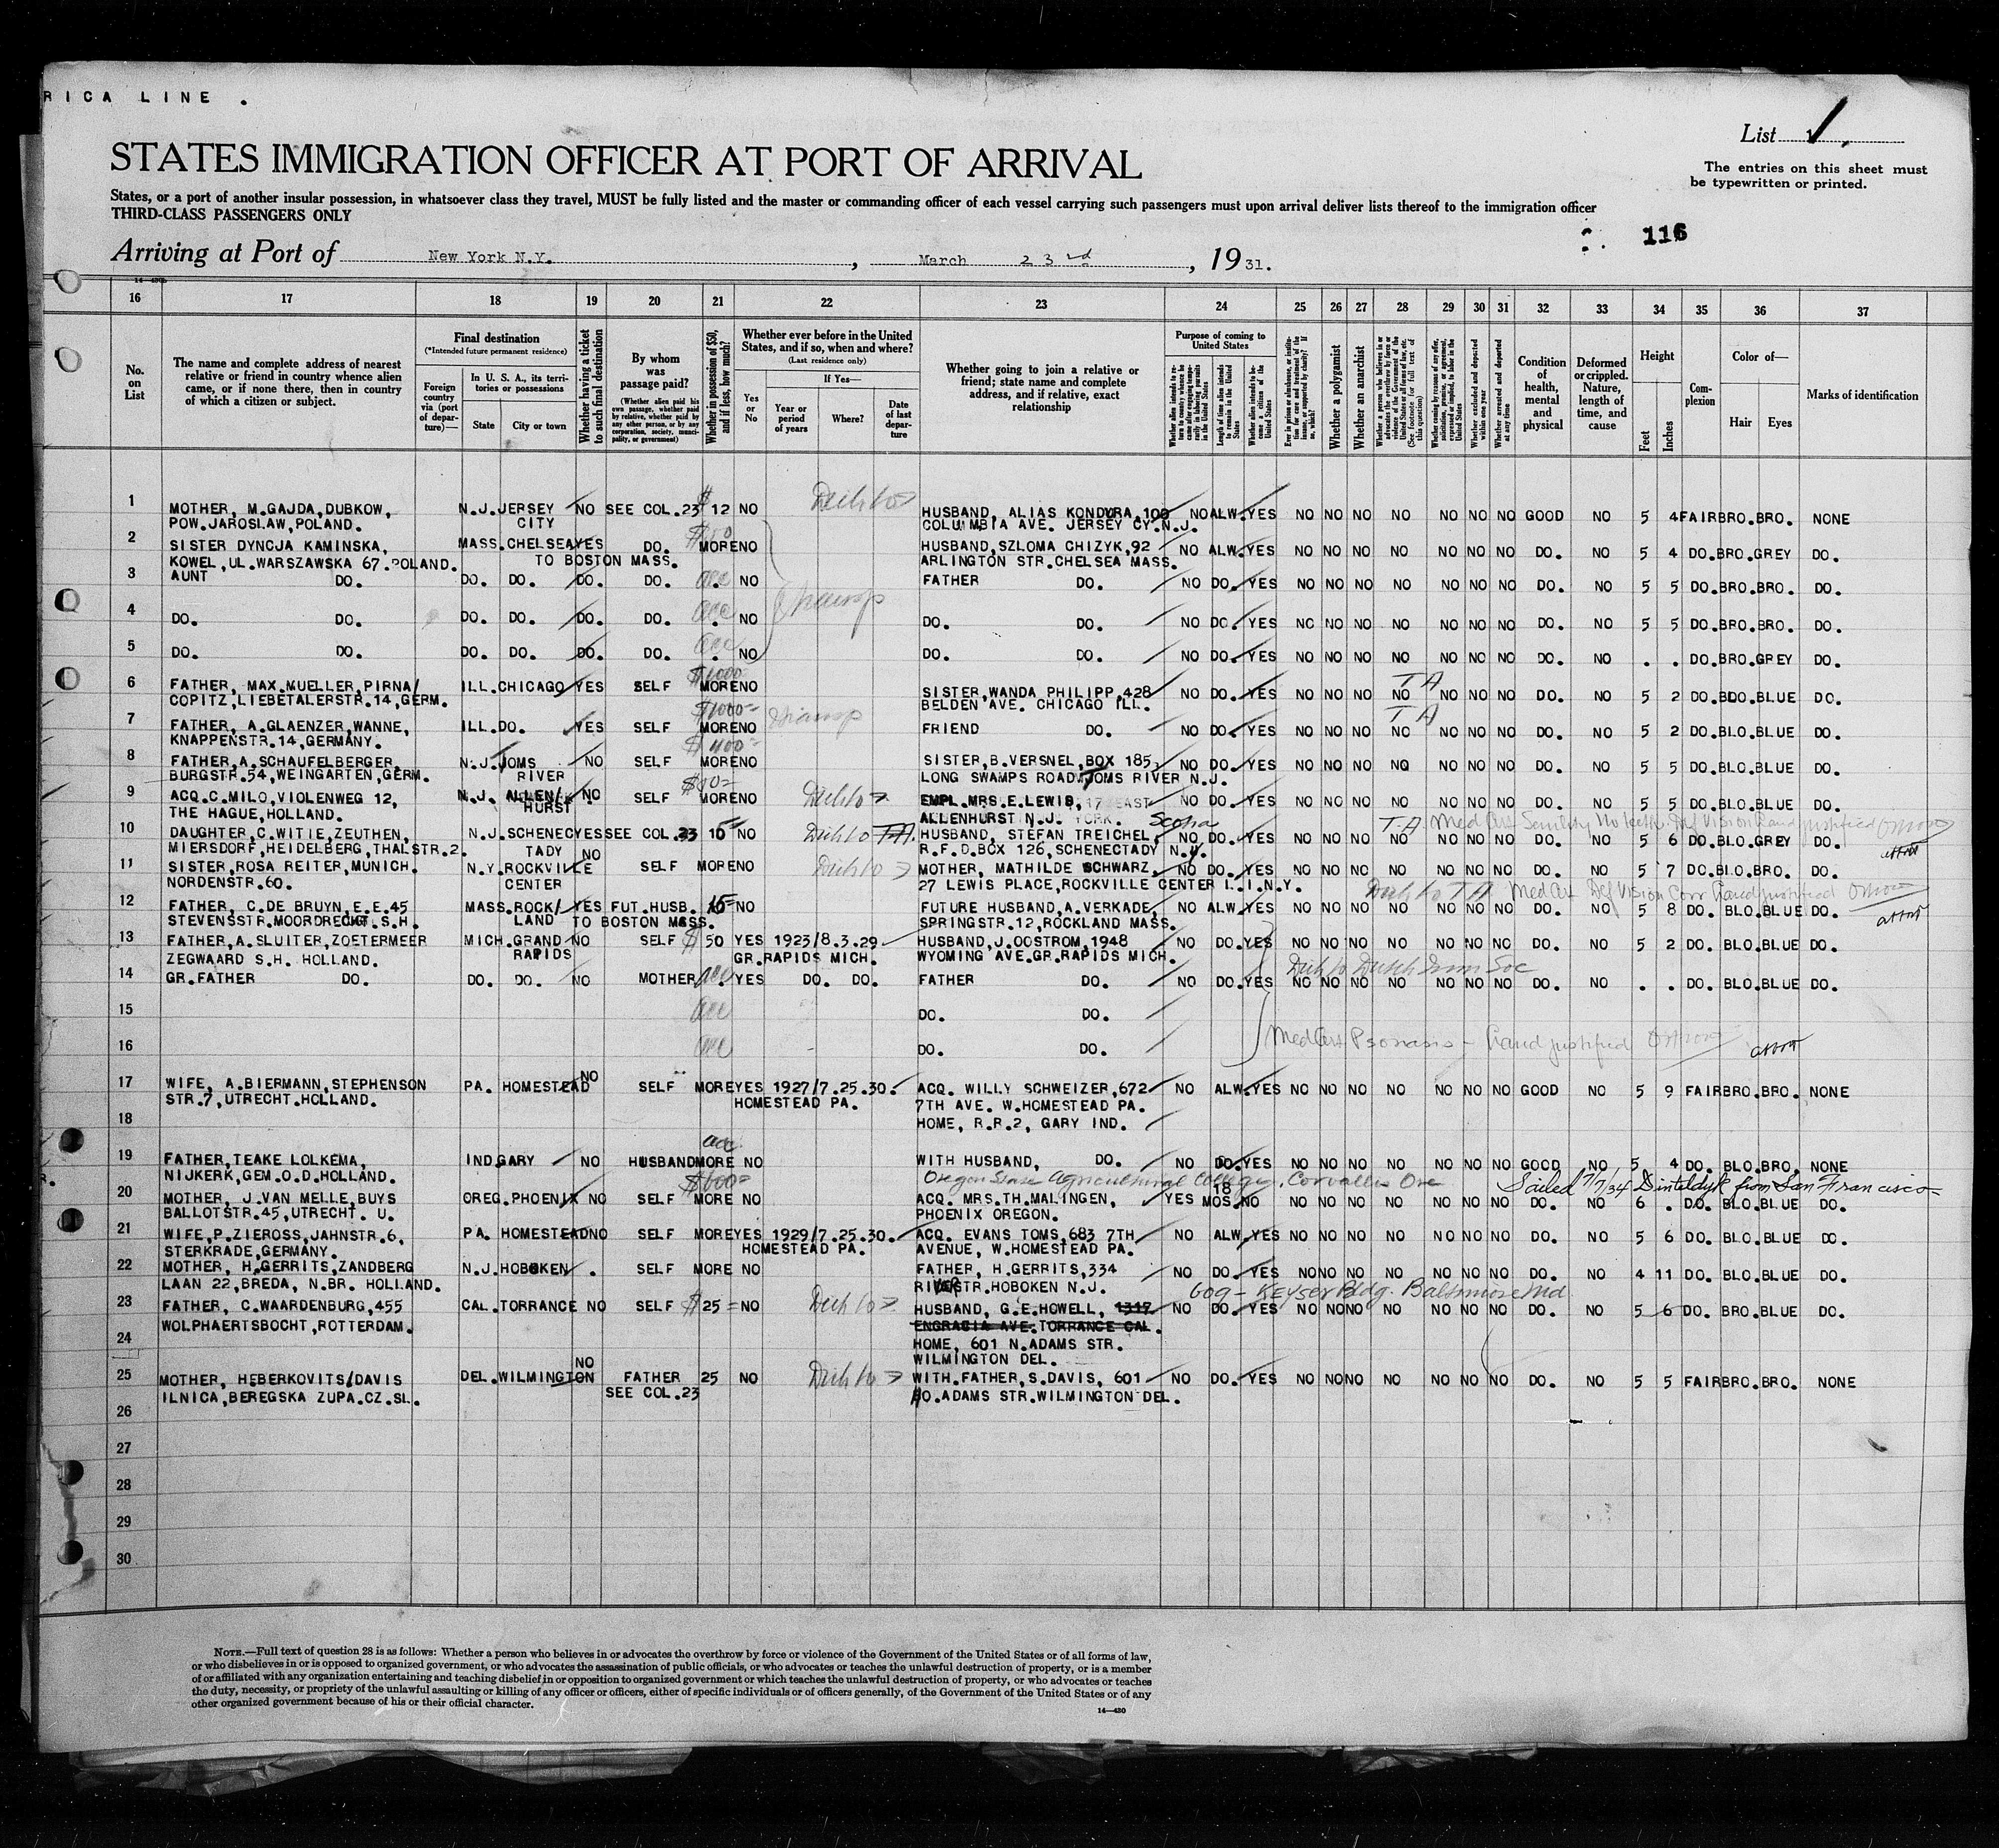 RICA LINE .
List 1
STATES IMMIGRATION OFFICER AT PORT OF ARRIVAL
The entries on this sheet must
be typewritten or printed.
States, or a port of another insular possession, in whatsoever class they travel, MUST be fully listed and the master or commanding officer of each vessel carrying such passengers must upon arrival deliver lists thereof to the immigration officer
THIRD-CLASS PASSENGERS ONLY
116
Arriving at Port of New York N.Y. , March 23rd , 1931.
16 17 18 19 20 21 22 23 24 25 26 27 28 29 30 31 32 33 34 35 36 37
No. on List
The name and complete address of nearest relative or friend in country whence alien came, or if none there, then in country of which a citizen or subject.
Final destination
(*Intended future permanent residence)
Foreign country via (port of departure)—
In U. S. A., its territories or possessions
State City or town
Whether having a ticket to such final destination
By whom was passage paid?
(Whether alien paid his own passage, whether paid by relative, whether paid by any other person, or by any corporation, society, municipality, or government)
Whether in possession of $50, and if less, how much?
Whether ever before in the United States, and if so, when and where?
(Last residence only)
Yes or No
If Yes—
Year or period of years Where? Date of last departure
Whether going to join a relative or friend; state name and complete address, and if relative, exact relationship
Purpose of coming to United States
Length of time alien intends to remain in the United States
Whether alien intends to become a citizen of the United States
Whether a polygamist
Whether an anarchist
Whether excluded and deported within one year
Whether arrested and deported at any time
Condition of health, mental and physical
Deformed or crippled. Nature, length of time, and cause
Height
Feet Inches
Complexion
Color of—
Hair Eyes
Marks of identification
1 MOTHER, M.GAJDA,DUBKOW, N.J.JERSEY NO SEE COL.23 $ 12 NO HUSBAND, ALIAS KONDURA,100 NO ALW.YES NO NO NO NO NO NO NO GOOD NO 5 4 FAIR BRO.BRO. NONE
POW.JAROSLAW,POLAND. CITY COLUMBIA AVE. JERSEY CY.N.J.
2 SISTER DYNCJA KAMINSKA, MASS.CHELSEA YES DO. MORE NO HUSBAND,SZLOMA CHIZYK,92 NO ALW.YES NO NO NO NO NO NO NO DO. NO 5 4 DO.BRO.GREY DO.
KOWEL,UL.WARSZAWSKA 67.POLAND. TO BOSTON MASS. ARLINGTON STR.CHELSEA MASS.
3 AUNT DO. DO. DO. DO. DO. . NO FATHER DO. NO DO. YES NO NO NO NO NO NO NO DO. NO 5 5 DO.BRO.BRO. DO.
4 DO. DO. DO. DO. DO. DO. . NO DO. DO. NO DO. YES NO NO NO NO NO NO NO DO. NO 5 5 DO.BRO.BRO. DO.
5 DO. DO. DO. DO. DO. DO. . NO DO. DO. NO DO. YES NO NO NO NO NO NO NO DO. NO . . DO.BRO.GREY DO.
6 FATHER, MAX MUELLER,PIRNA/ ILL.CHICAGO YES SELF $1000 MORE NO SISTER,WANDA PHILIPP,428 NO DO. YES NO NO NO TA NO NO NO NO DO. NO 5 2 DO.BLO.BLUE DO.
COPITZ,LIEBETALERSTR.14,GERM. BELDEN AVE. CHICAGO ILL.
7 FATHER, A.GLAENZER,WANNE, ILL.DO. YES SELF $1000 MORE NO FRIEND DO. NO DO. YES NO NO NO TA NO NO NO NO DO. NO 5 2 DO.BLO.BLUE DO.
KNAPPENSTR.14,GERMANY.
8 FATHER,A.SCHAUFELBERGER, N.J.TOMS NO SELF $400 MORE NO SISTER,B.VERSNEL,BOX 185, NO DO. YES NO NO NO NO NO NO NO DO. NO 5 5 DO.BLO.BLUE DO.
BURGSTR.54,WEINGARTEN,GERM. RIVER LONG SWAMPS ROAD TOMS RIVER N.J.
9 ACQ.C.MILO,VIOLENWEG 12, N.J. ALLEN/ NO SELF MORE NO EMPL.MRS.E.LEWIS, 17 EAST NO DO. YES NO NO NO NO NO NO NO DO. NO 5 5 DO.BLO.BLUE DO.
THE HAGUE,HOLLAND. HURST ALLENHURST N.J. YORK.
10 DAUGHTER,C.WITIE,ZEUTHEN, N.J.SCHENEC YES SEE COL.23 NO Scotia HUSBAND, STEFAN TREICHEL, NO DO. YES NO NO NO NO NO NO NO DO. NO 5 6 DO.BLO.GREY DO.
MIERSDORF,HEIDELBERG,THALSTR.2. TADY R.F.D.BOX 126,SCHENECTADY N.Y.
11 SISTER,ROSA REITER,MUNICH. N.Y.ROCKVILLE NO SELF MORE NO MOTHER, MATHILDE SCHWARZ, NO DO. YES NO NO NO NO NO NO NO DO. NO 5 7 DO.BLO.BRO. DO.
NORDENSTR.60. CENTER 27 LEWIS PLACE,ROCKVILLE CENTER L.I.N.Y.
12 FATHER, C.DE BRUYN,E.E.45 MASS.ROCK/ YES FUT.HUSB. 15 NO FUTURE HUSBAND,A.VERKADE, NO ALW.YES NO NO NO NO NO NO NO DO. NO 5 8 DO. BLO.BLUE DO.
STEVENSSTR.MOORDRECHT.S.H. LAND TO BOSTON MASS. SPRINGSTR.12,ROCKLAND MASS.
13 FATHER,A.SLUITER,ZOETERMEER MICH.GRAND NO SELF $ 50 YES 1923/8.3.29. HUSBAND,J.OOSTROM,1948 NO DO.YES NO NO NO NO NO NO NO DO. NO 5 2 DO. BLO.BLUE DO.
ZEGWAARD S.H. HOLLAND. RAPIDS GR.RAPIDS MICH. WYOMING AVE.GR.RAPIDS MICH.
14 GR.FATHER DO. DO. DO. NO MOTHER . YES DO. DO. FATHER DO. NO DO.YES NO NO NO NO NO NO NO DO. NO . . DO. BLO.BLUE DO.
15 DO. DO.
16 DO. DO. Med Cert Psoriasis
17 WIFE, A.BIERMANN,STEPHENSON PA. HOMESTEAD NO SELF MORE YES 1927/7.25.30. ACQ. WILLY SCHWEIZER,672 NO ALW.YES NO NO NO NO NO NO NO GOOD NO 5 9 FAIR BRO.BRO. NONE
STR.7,UTRECHT.HOLLAND. HOMESTEAD PA. 7TH AVE. W.HOMESTEAD PA.
18 HOME, R.R.2, GARY IND.
19 FATHER,TEAKE LOLKEMA, IND.GARY NO HUSBAND MORE NO WITH HUSBAND, DO. NO DO.YES NO NO NO NO NO NO NO GOOD NO 5 4 DO. BLO.BRO. NONE
NIJKERK,GEM.O.D.HOLLAND. Oregon State Agricultural College, Corvallis Ore Sailed 7/7/34 Dinteldyk from San Francisco
20 MOTHER, J.VAN MELLE,BUYS OREG.PHOENIX NO SELF $600 MORE NO ACQ. MRS.TH.MALINGEN, YES 18 MOS.NO NO NO NO NO NO NO NO DO. NO 6 . DO. BLO.BLUE DO.
BALLOTSTR.45,UTRECHT. U. PHOENIX OREGON.
21 WIFE,P.ZIEROSS,JAHNSTR.6, PA. HOMESTEAD NO SELF MORE YES 1929/7.25.30. ACQ. EVANS TOMS,683 7TH NO ALW.YES NO NO NO NO NO NO NO DO. NO 5 6 DO. BLO.BLUE DO.
STERKRADE,GERMANY. HOMESTEAD PA. AVENUE, W.HOMESTEAD PA.
22 MOTHER, H.GERRITS,ZANDBERG N.J.HOBOKEN . SELF MORE NO FATHER, H.GERRITS,334 NO DO. YES NO NO NO NO NO NO NO DO. NO 4 11 DO. BLO.BLUE DO.
LAAN 22,BREDA, N.BR. HOLLAND. RIVER STR.HOBOKEN N.J. 609 - Keyser Bldg. Baltimore Md
23 FATHER, C.WAARDENBURG,455 CAL.TORRANCE NO SELF $25 NO HUSBAND, G.E.HOWELL, 1317 NO DO. YES NO NO NO NO NO NO NO DO. NO 5 6 DO. BRO.BLUE DO.
WOLPHAERTSBOCHT,ROTTERDAM. ENGRACIA AVE.TORRANCE CAL.
24 HOME, 601 N.ADAMS STR.
WILMINGTON DEL.
25 MOTHER, HEBERKOVITS/DAVIS DEL.WILMINGTON NO FATHER 25 NO WITH.FATHER,S.DAVIS, 601 NO DO. YES NO NO NO NO NO NO NO DO. NO 5 5 FAIR BRO.BRO. NONE
ILNICA,BEREGSKA ZUPA.CZ.SL. SEE COL.23 NO.ADAMS STR.WILMINGTON DEL.
26
27
28
29
30
NOTE.—Full text of question 28 is as follows: Whether a person who believes in or advocates the overthrow by force or violence of the Government of the United States or of all forms of law,
or who disbelieves in or is opposed to organized government, or who advocates the assassination of public officials, or who advocates or teaches the unlawful destruction of property, or is a member
of or affiliated with any organization entertaining and teaching disbelief in or opposition to organized government or which teaches the unlawful destruction of property, or who advocates or teaches
the duty, necessity, or propriety of the unlawful assaulting or killing of any officer or officers, either of specific individuals or of officers generally, of the Government of the United States or of any
other organized government because of his or their official character.
14—430